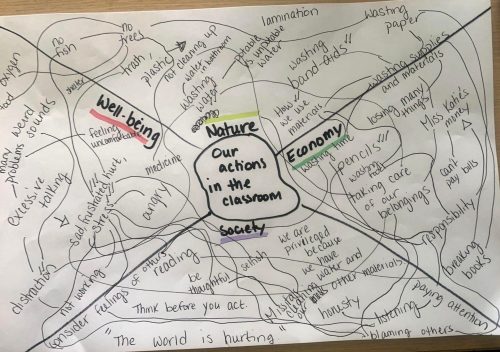 no
fish
no
trees
oxygen
trash,
plastic
not cleaning up
water in bathroom
wasting
water
potable
vs unpotable
water
lamination
wasting
paper
wasting
band-aids!!
wasting supplies
and materials
How
we use
materials
losing many
things!
Miss Katie's
money
can't
pay bills
Nature
Well-being
Economy
Society
Our
actions
in the
classroom
feeling
uncomfortable
weird
sounds
many
problems
excessive
talking
sad, frustrated, hurt,
stress
angry
medicine
wasting time
pencils!!!
wasting
taking care
of our
belongings
responsibility
breaking
books
distraction
not working
consider feelings
of others
reading
be
thoughtful
selfish
we are
privileged
because
we have
water and
other materials
honesty
Think before you act.
listening
paying attention
blaming others
"The world is hurting"